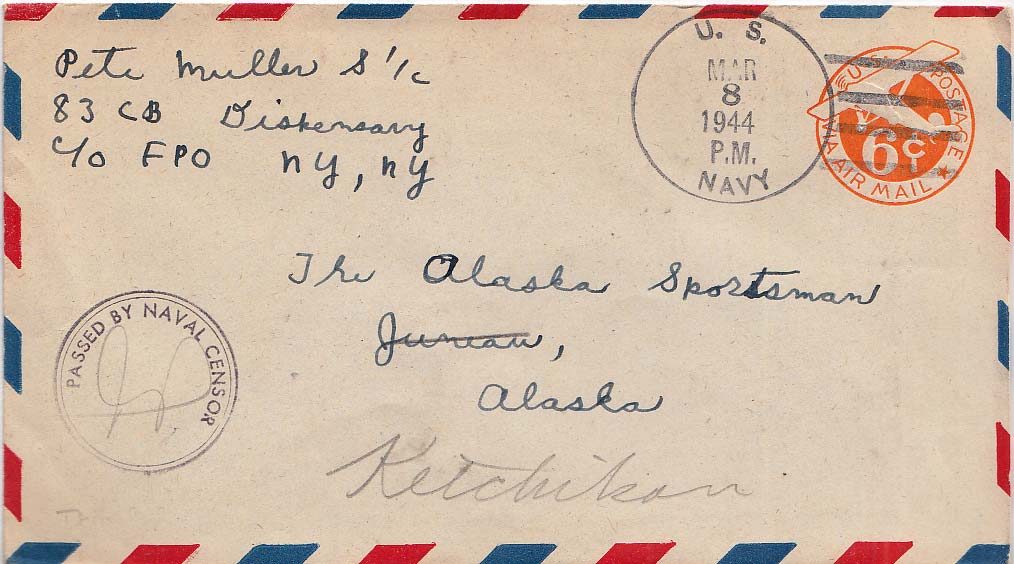 Pete Muller S 1/c
83 CB Dispensary
c/o FPO NY, NY
U. S.
MAR
8
1944
P.M.
NAVY
U.S. POSTAGE
6¢
VIA AIR MAIL
The Alaska Sportsman
Juneau,
Alaska
Ketchikan
PASSED BY NAVAL CENSOR